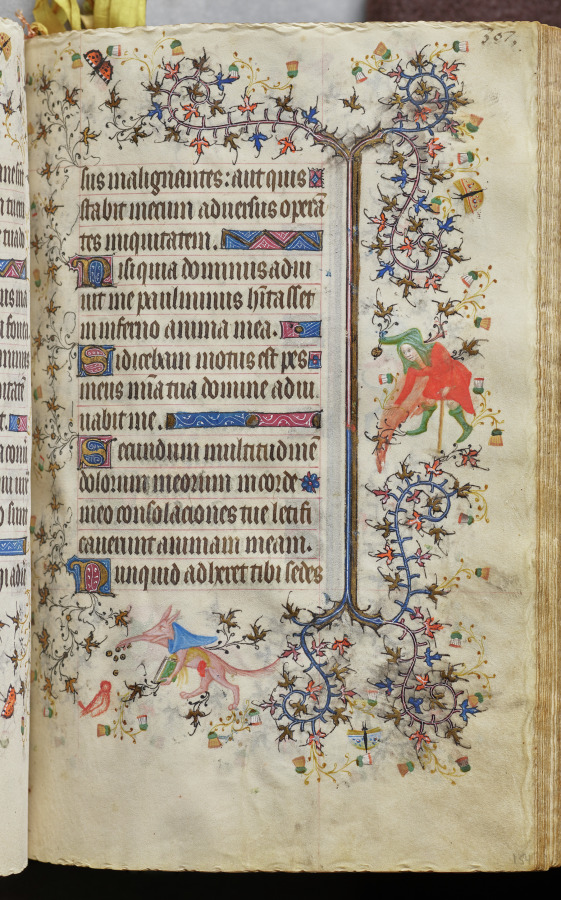 307.
sus malignantes: aut quis
stabit mecum adversus opera
tes iniquitatem.
Nisi quia dominus adiu
uit me paulminus hitasset
in inferno anima mea.
Si dicebam motus est pes
meus mia tua domine adiu
uabit me.
Secundum multitudine
dolorum meorum in corde
meo consolaciones tue letifi
cauerunt animam meam.
Nunquid adheret tibi sedes